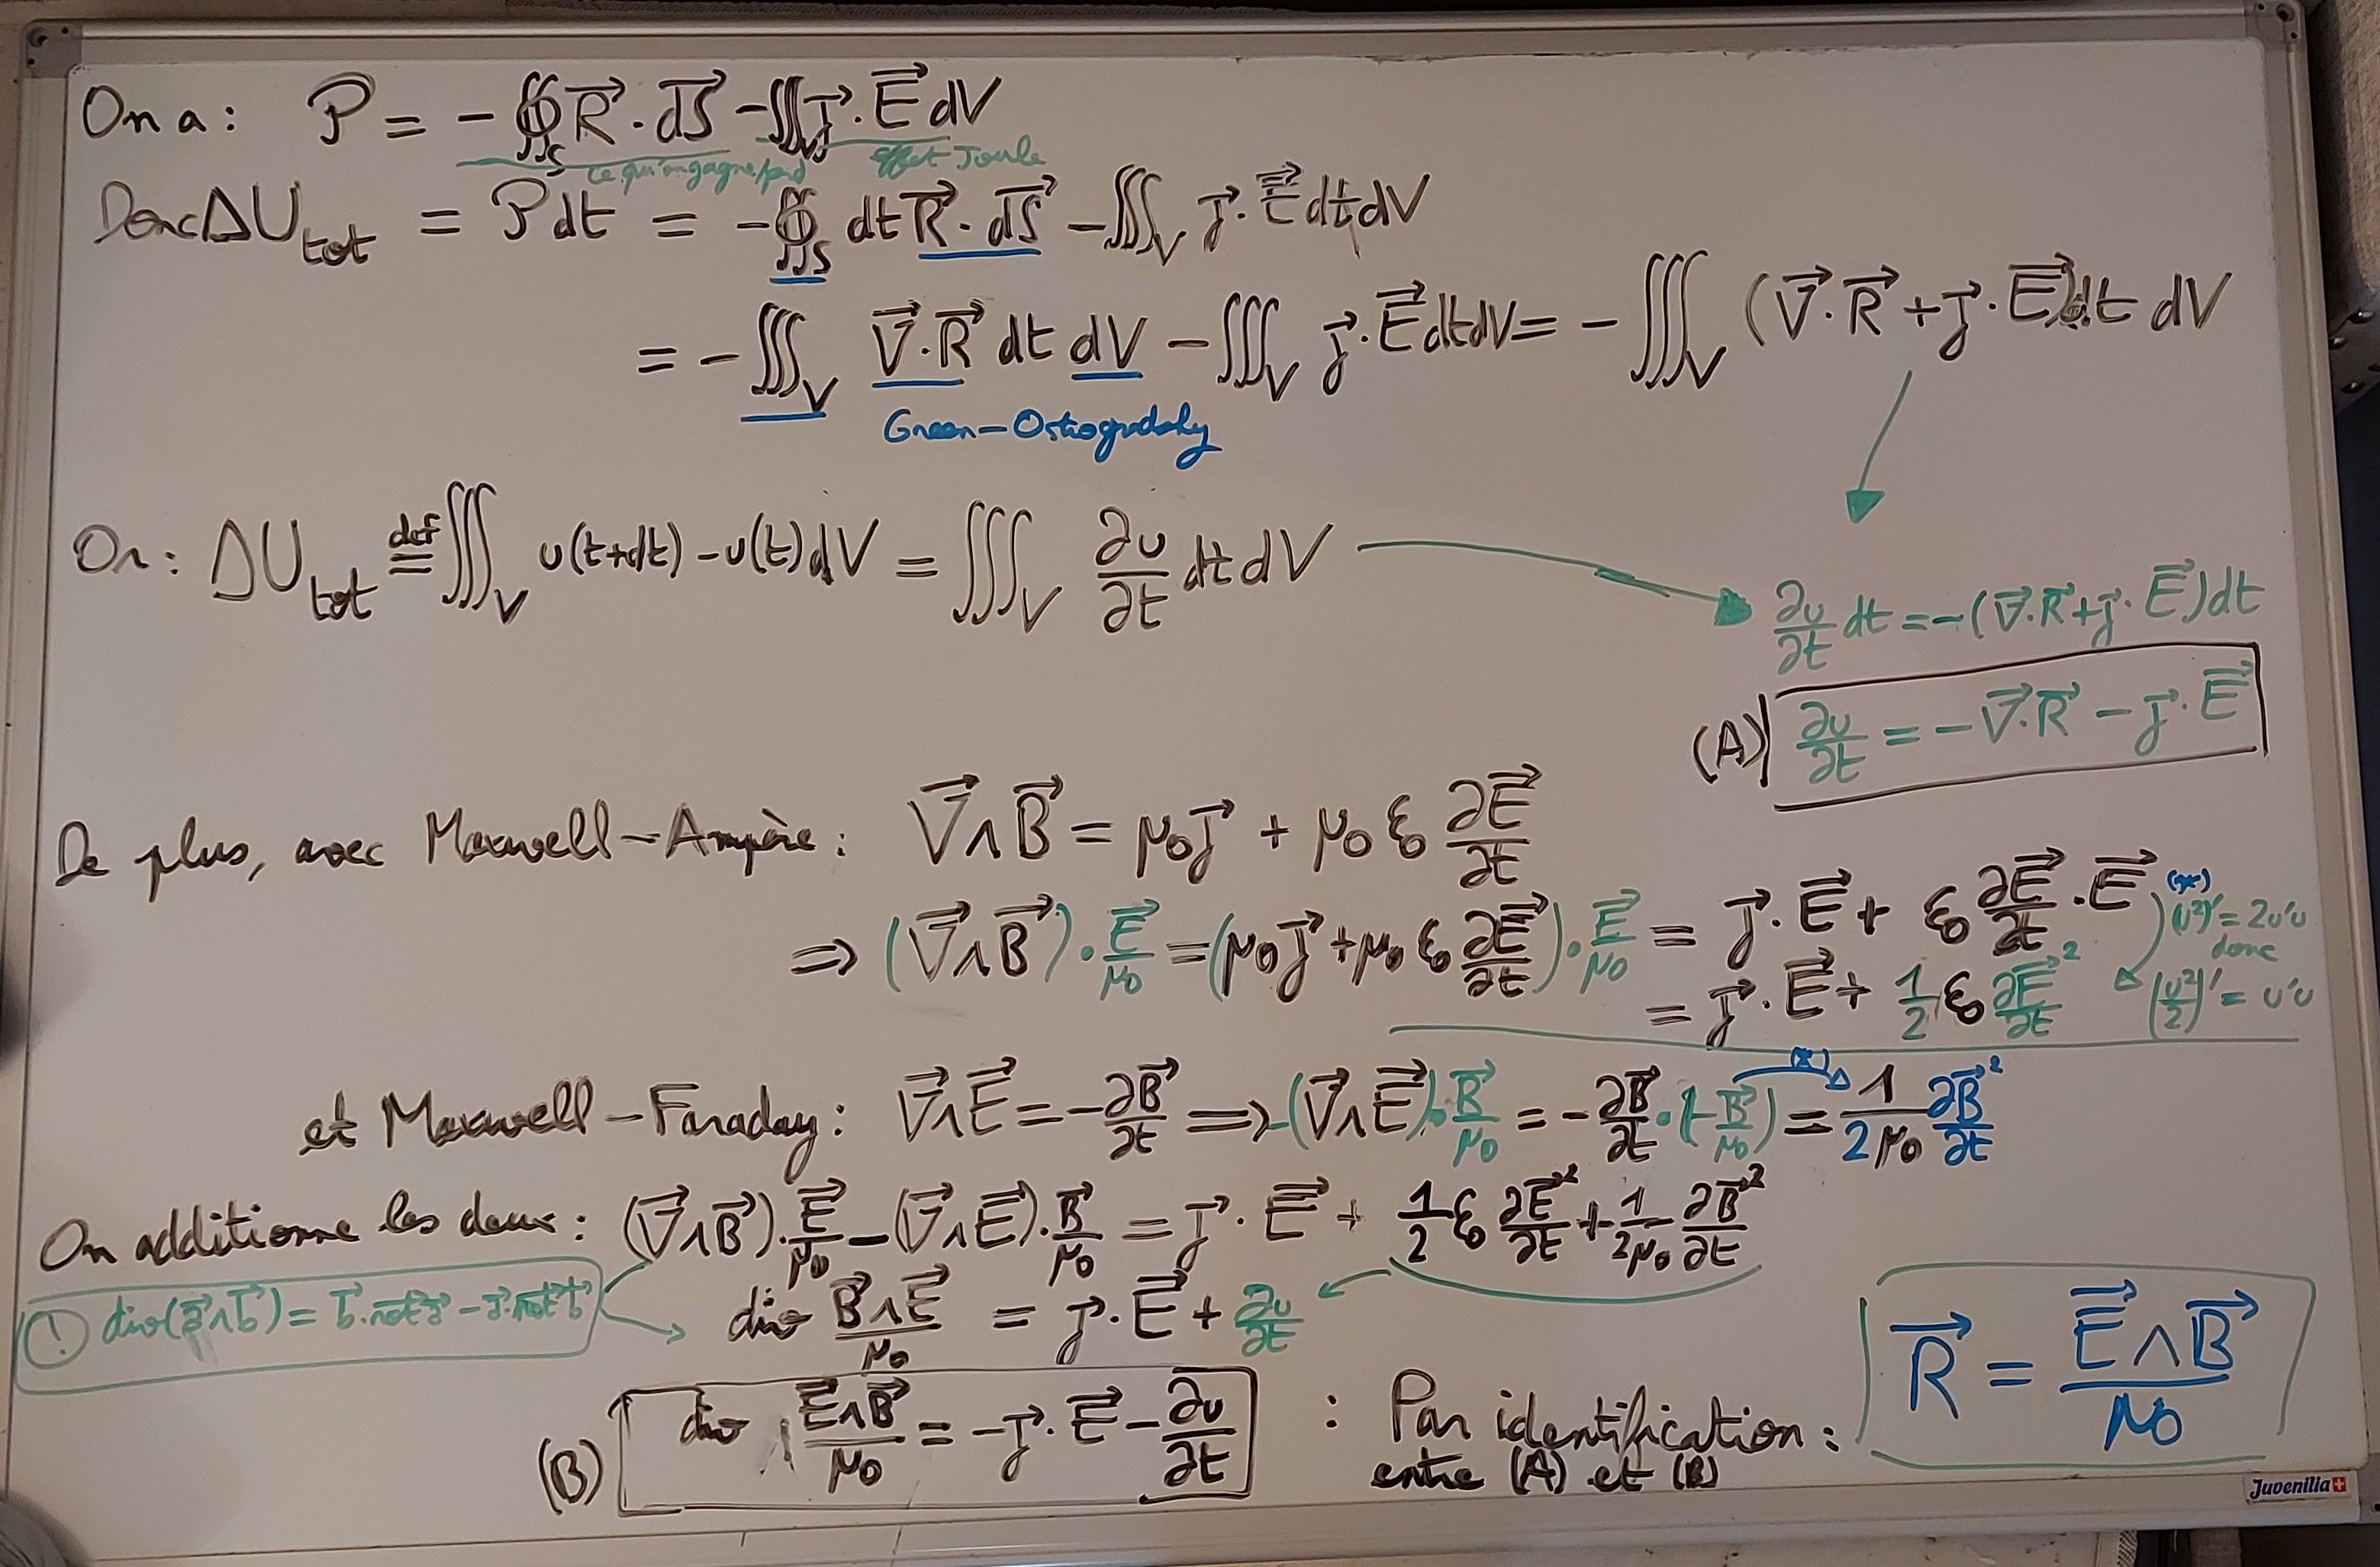 On a : P = - ∯_S R⃗ · dS⃗ - ∭_V j⃗ · E⃗ dV
ce qu'on gagne/perd effet Joule
Donc ΔU_tot = P dt = - ∯_S dt R⃗ · dS⃗ - ∭_V j⃗ · E⃗ dt dV
= - ∭_V ∇⃗ · R⃗ dt dV - ∭_V j⃗ · E⃗ dt dV = - ∭_V (∇⃗ · R⃗ + j⃗ · E⃗) dt dV
Green-Ostrogradsky
Or : ΔU_tot ≝ ∭_V u(t+dt) - u(t) dV = ∭_V ∂u/∂t dt dV
∂u/∂t dt = -(∇⃗ · R⃗ + j⃗ · E⃗) dt
(A) ∂u/∂t = - ∇⃗ · R⃗ - j⃗ · E⃗
De plus, avec Maxwell-Ampère : ∇⃗ ∧ B⃗ = μ₀ j⃗ + μ₀ ε₀ ∂E⃗/∂t
⇒ (∇⃗ ∧ B⃗) · E⃗/μ₀ = (μ₀ j⃗ + μ₀ ε₀ ∂E⃗/∂t) · E⃗/μ₀ = j⃗ · E⃗ + ε₀ ∂E⃗/∂t · E⃗
= j⃗ · E⃗ + 1/2 ε₀ ∂E⃗²/∂t
(*)
(u²)' = 2u'u
donc
(u²/2)' = u'u
et Maxwell-Faraday : ∇⃗ ∧ E⃗ = - ∂B⃗/∂t ⇒ -(∇⃗ ∧ E⃗) · B⃗/μ₀ = - ∂B⃗/∂t · (- B⃗/μ₀) = 1/(2μ₀) ∂B⃗²/∂t
(*)
On additionne les deux : (∇⃗ ∧ B⃗) · E⃗/μ₀ - (∇⃗ ∧ E⃗) · B⃗/μ₀ = j⃗ · E⃗ + 1/2 ε₀ ∂E⃗²/∂t + 1/(2μ₀) ∂B⃗²/∂t
! div(a⃗ ∧ b⃗) = b⃗ · rot a⃗ - a⃗ · rot b⃗
div B⃗ ∧ E⃗/μ₀ = j⃗ · E⃗ + ∂u/∂t
(B) div E⃗ ∧ B⃗/μ₀ = - j⃗ · E⃗ - ∂u/∂t : Par identification :
entre (A) et (B)
R⃗ = E⃗ ∧ B⃗/μ₀
Juvenilia